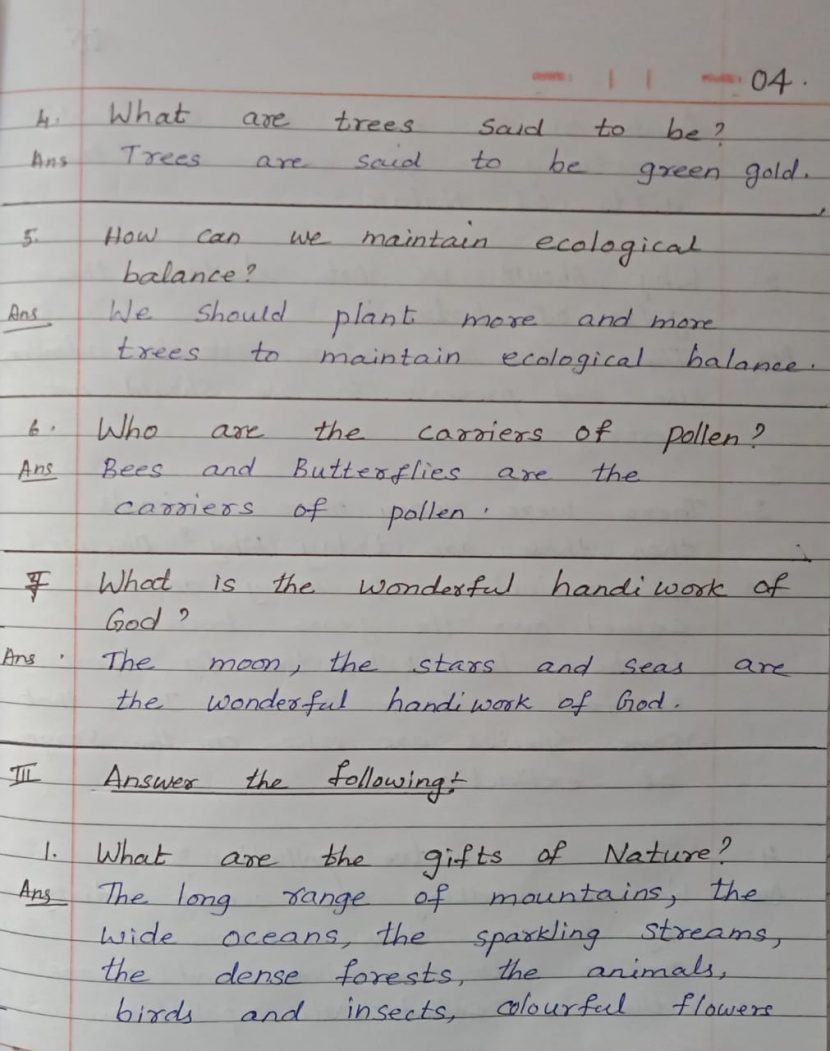 04.
4. What are trees said to be?
Ans Trees are said to be green gold.
5. How can we maintain ecological
balance?
Ans We should plant more and more
trees to maintain ecological balance.
6. Who are the carriers of pollen?
Ans Bees and Butterflies are the
carriers of pollen.
7 What is the wonderful handiwork of
God?
Ans. The moon, the stars and seas are
the wonderful handiwork of God.
III Answer the following:-
1. What are the gifts of Nature?
Ans The long range of mountains, the
wide oceans, the sparkling streams,
the dense forests, the animals,
birds and insects, colourful flowers